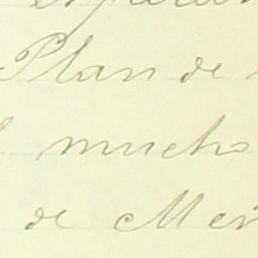 Plan de
mucho
de Mer